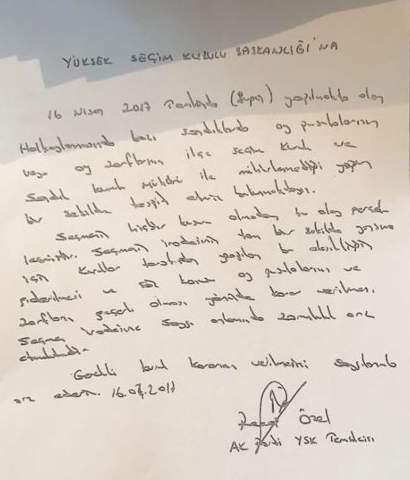 YÜKSEK SEÇİM KURULU BAŞKANLIĞI'NA
16 Nisan 2017 Tarihinde (bugün) yapılmakta olan
Halkoylamasında bazı sandıklarda oy pusulalarının
veya oy zarflarının ilçe seçim kurulu ve
Sandık kurulu mühürü ile mühürlenmediği yaygın
bir şekilde tespit etmiş bulunmaktayız.
Seçmenin hiçbir kusuru olmadan bu olay gerçek
leşmiştir. Seçmenin iradesinin tam bir şekilde yansıma
için kurullar tarafından yapılan bu eksikliğin
giderilmesi ve söz konusu oy pusulalarını ve
zarfların geçerli olması yönünde karar verilmesi,
Seçmen iradesine Saygı anlamında zorunluluk arz
etmektedir.
Gerekli kararının verilmesini saygılarımla
arz ederim. 16.04.2017
Recep Özel
AK Parti YSK Temsilcisi